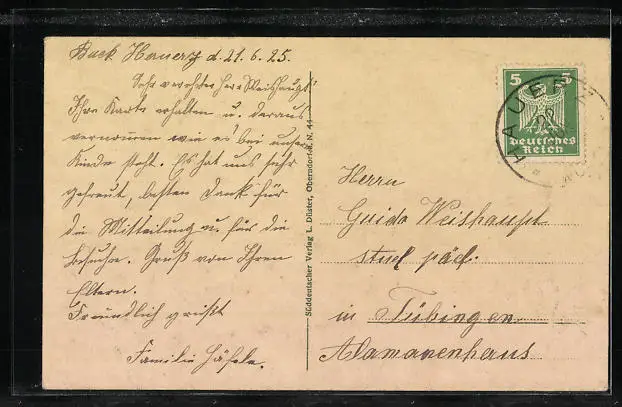 Buck Hauerz d. 21.6.25.
Sehr verehrter Herr Weishaupt!
Ihre Karte erhalten u. daraus
vernommen wie es bei unserm
Kinde steht. Es hat uns sehr
gefreut, besten Dank für
die Mitteilung u. für die
Besuche. Gruß von Ihren
Eltern.
Freundlich grüßt
Familie Häfele.
Süddeutscher Verlag L. Düster, Oberndorf a. N. 44
5 5
Deutsches
Reich
HAUERZ
Herrn
Guido Weishaupt
stud päd.
in Tübingen
Alamanenhaus